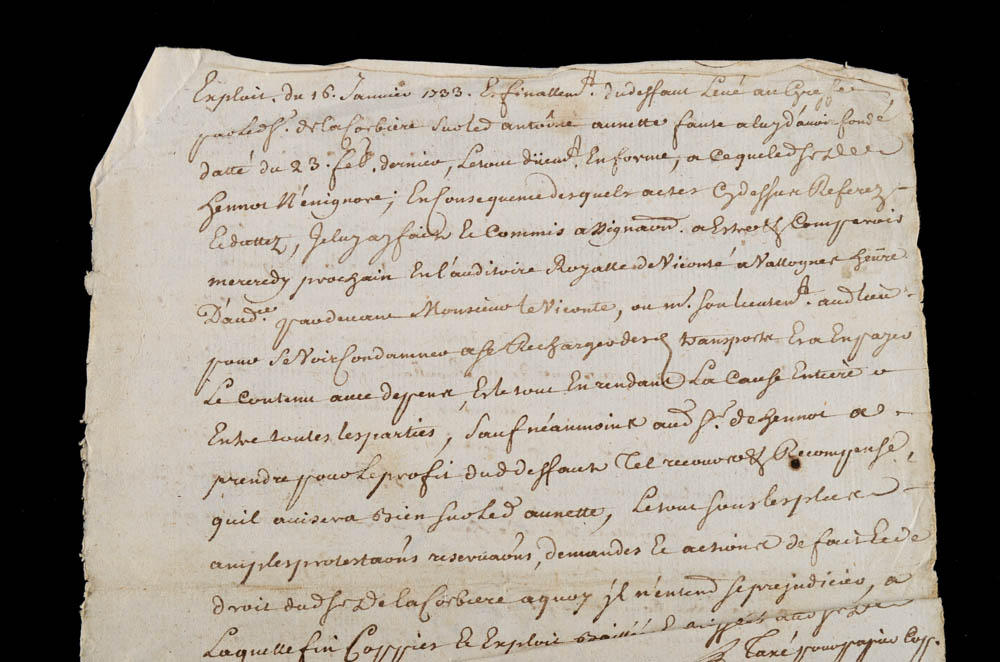 Exploit. du 16. Janvier 1733. Et finallemt. dudeffaut Levé au Greffe
par Led sr. de la Corbiere sur led antoine aunette faute a luy davoir fondé
datté du 23. feb. dernier, Le tout düemt. En forme, a ce que led sr de
hennot N'en ignore; En Consequence desquels actes Cy dessus Referez
Et dattez, Je luy ay fait Et Commis assignaon. a Estre & Comparoir
mercredy prochain En l'auditoire Royalle de Viconté a Vallognes heure
D'audce. pardevant Monsieur le Viconte, ou mr. son lieutent. aud lieu
pour se Voir Condamner a se Recharger desd transports Et a En payer
Le Contenu avec depens, Et le tout En rendant La Cause Entiere
Entre toutes les parties, Sauf néanmoins aud sr. de hennot a
prendre pour le profit dud deffaut Tel recours & Recompense,
quil avisera Bien sur led aunette, Le tout sous les plus
amples protestaons reservaons, demandes Et actions de fait Et de
droit dud sr de la Corbiere a quoy jl n'entend se prejudicier, a
Laquelle fin Coppies Et Exploit Baillé
Taxé pour papier Cop.